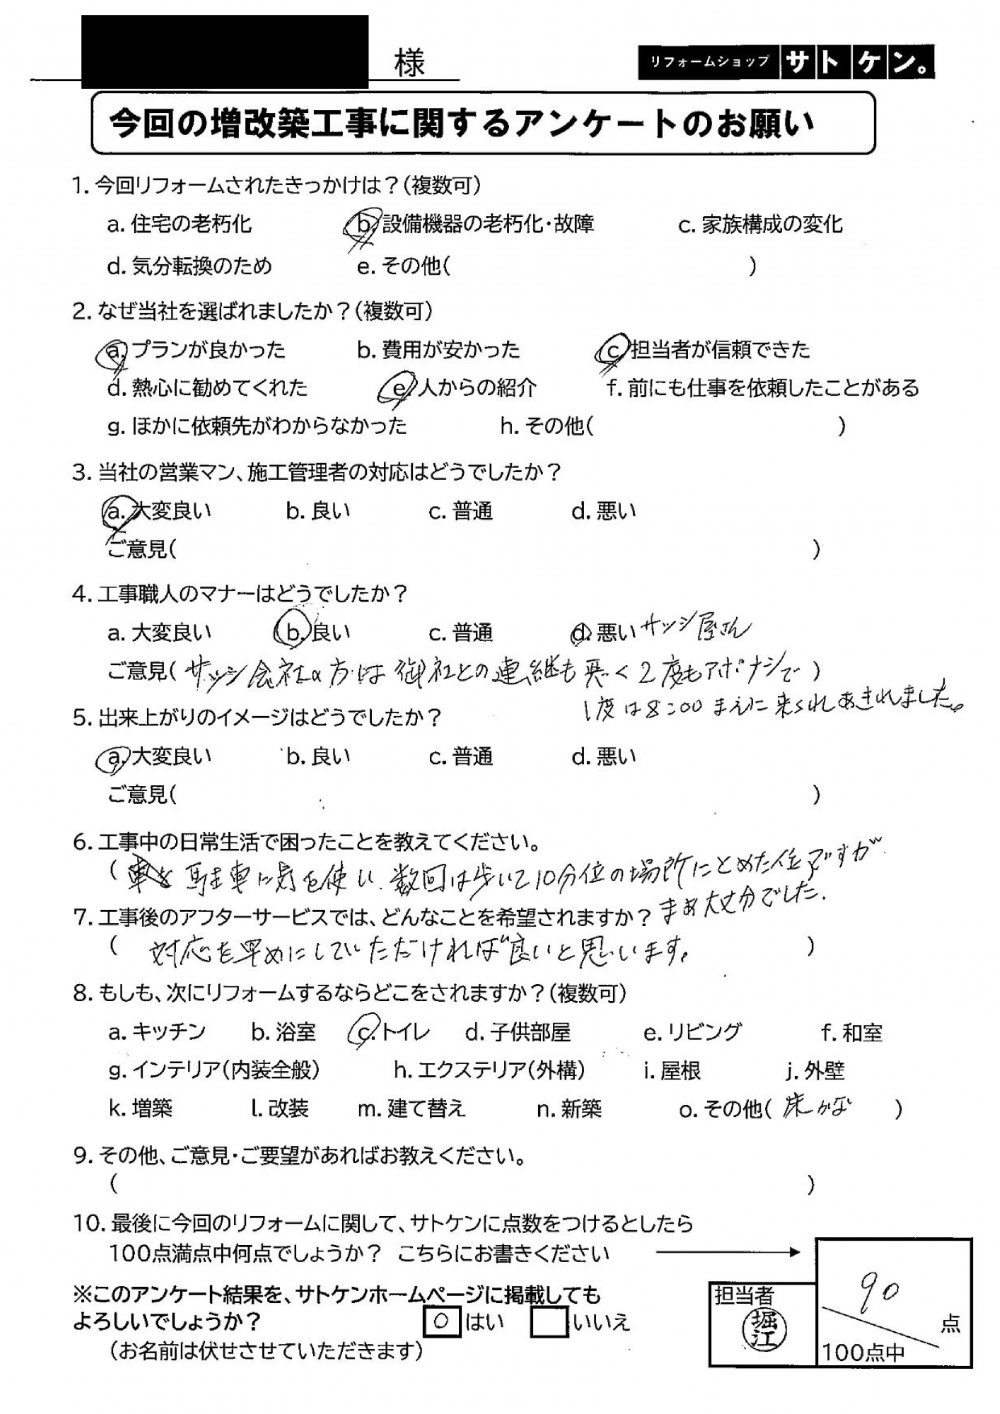 様
リフォームショップ サトケン。
今回の増改築工事に関するアンケートのお願い
1. 今回リフォームされたきっかけは？(複数可)
a. 住宅の老朽化 b. 設備機器の老朽化・故障 c. 家族構成の変化
d. 気分転換のため e. その他( )
2. なぜ当社を選ばれましたか？(複数可)
a. プランが良かった b. 費用が安かった c. 担当者が信頼できた
d. 熱心に勧めてくれた e. 人からの紹介 f. 前にも仕事を依頼したことがある
g. ほかに依頼先がわからなかった h. その他( )
3. 当社の営業マン、施工管理者の対応はどうでしたか？
a. 大変良い b. 良い c. 普通 d. 悪い
ご意見( )
4. 工事職人のマナーはどうでしたか？
a. 大変良い b. 良い c. 普通 d. 悪い サッシ屋さん
ご意見( サッシ会社の方は御社との連継も悪く2度もアポナシで )
1度は8:00まえに来られあきれました。
5. 出来上がりのイメージはどうでしたか？
a. 大変良い b. 良い c. 普通 d. 悪い
ご意見( )
6. 工事中の日常生活で困ったことを教えてください。
( 駐車に気を使い、数回は歩いて10分位の場所にとめた位ですが
まあ大丈夫でした.
7. 工事後のアフターサービスでは、どんなことを希望されますか？
( 対応を早めにしていただければ良いと思います。 )
8. もしも、次にリフォームするならどこをされますか？(複数可)
a. キッチン b. 浴室 c. トイレ d. 子供部屋 e. リビング f. 和室
g. インテリア(内装全般) h. エクステリア(外構) i. 屋根 j. 外壁
k. 増築 l. 改装 m. 建て替え n. 新築 o. その他( 床かな )
9. その他、ご意見・ご要望があればお教えください。
( )
10. 最後に今回のリフォームに関して、サトケンに点数をつけるとしたら
100点満点中何点でしょうか？ こちらにお書きください
※このアンケート結果を、サトケンホームページに掲載しても
よろしいでしょうか？ ○ はい いいえ
(お名前は伏せさせていただきます)
担当者
堀江
90 点
100点中